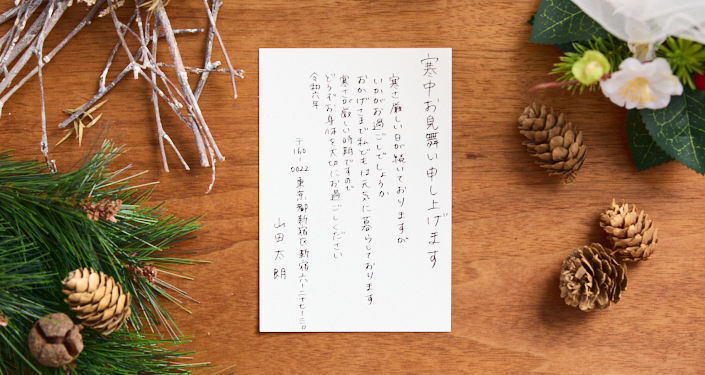 寒中お見舞い申し上げます
寒さ厳しい日が続いておりますが
いかがお過ごしでしょうか
おかげさまで私どもは元気に暮らしております
寒さが厳しい時期ですので
どうぞお身体を大切にお過ごしください
令和六年
〒160-0022 東京都新宿区新宿六-二十七-三〇
山田太朗